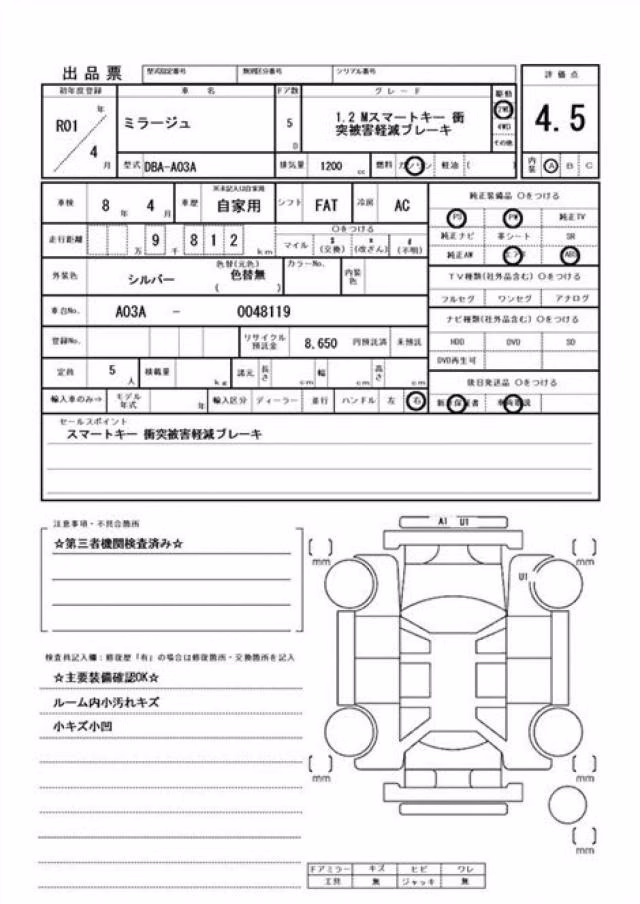 出品票 型式指定番号 類別区分番号 シリアル番号
評価点
初年度登録 車名 ドア数 グレード 駆動
R01 年 ミラージュ 5 D 1.2 Mスマートキー 衝突被害軽減ブレーキ 2WD 4WD その他 4.5
4 月 型式 DBA-A03A 排気量 1200 cc 燃料 ガソリン 軽油 ( ) 内装 A B C
車検 8 年 4 月 車歴 ※未記入は自家用 自家用 シフト FAT 冷房 AC
純正装備品 ○をつける
PS PW 純正TV
純正ナビ 革シート SR
純正AW エアB ABS
走行距離 万 9 千 8 1 2 km ○をつける マイル $ (交換) * (改ざん) # (不明)
外装色 シルバー 色替(元色) 色替無 ( ) カラーNo. 内装色
TV種類(社外品含む) ○をつける
フルセグ ワンセグ アナログ
車台No. A03A - 0048119
ナビ種類(社外品含む) ○をつける
登録No. リサイクル預託金 8,650 円預託済 未預託
HDD DVD SD
DVD再生可
定員 5 人 積載量 kg 諸元 長さ cm 幅 cm 高さ cm
後日発送品 ○をつける
輸入車のみ⇒ モデル年式 年 輸入区分 ディーラー 並行 ハンドル 左 右
新車保証書 車両取説
セールスポイント
スマートキー 衝突被害軽減ブレーキ
注意事項・不具合箇所
☆第三者機関検査済み☆
検査員記入欄:修復歴「有」の場合は修復箇所・交換箇所を記入
☆主要装備確認OK☆
ルーム内小汚れキズ
小キズ小凹
A1 U1
U1
[ ] mm
[ ] mm
[ ] mm
[ ] mm
[ ] mm
ドアミラー キズ ヒビ ワレ
工具 無 ジャッキ 無